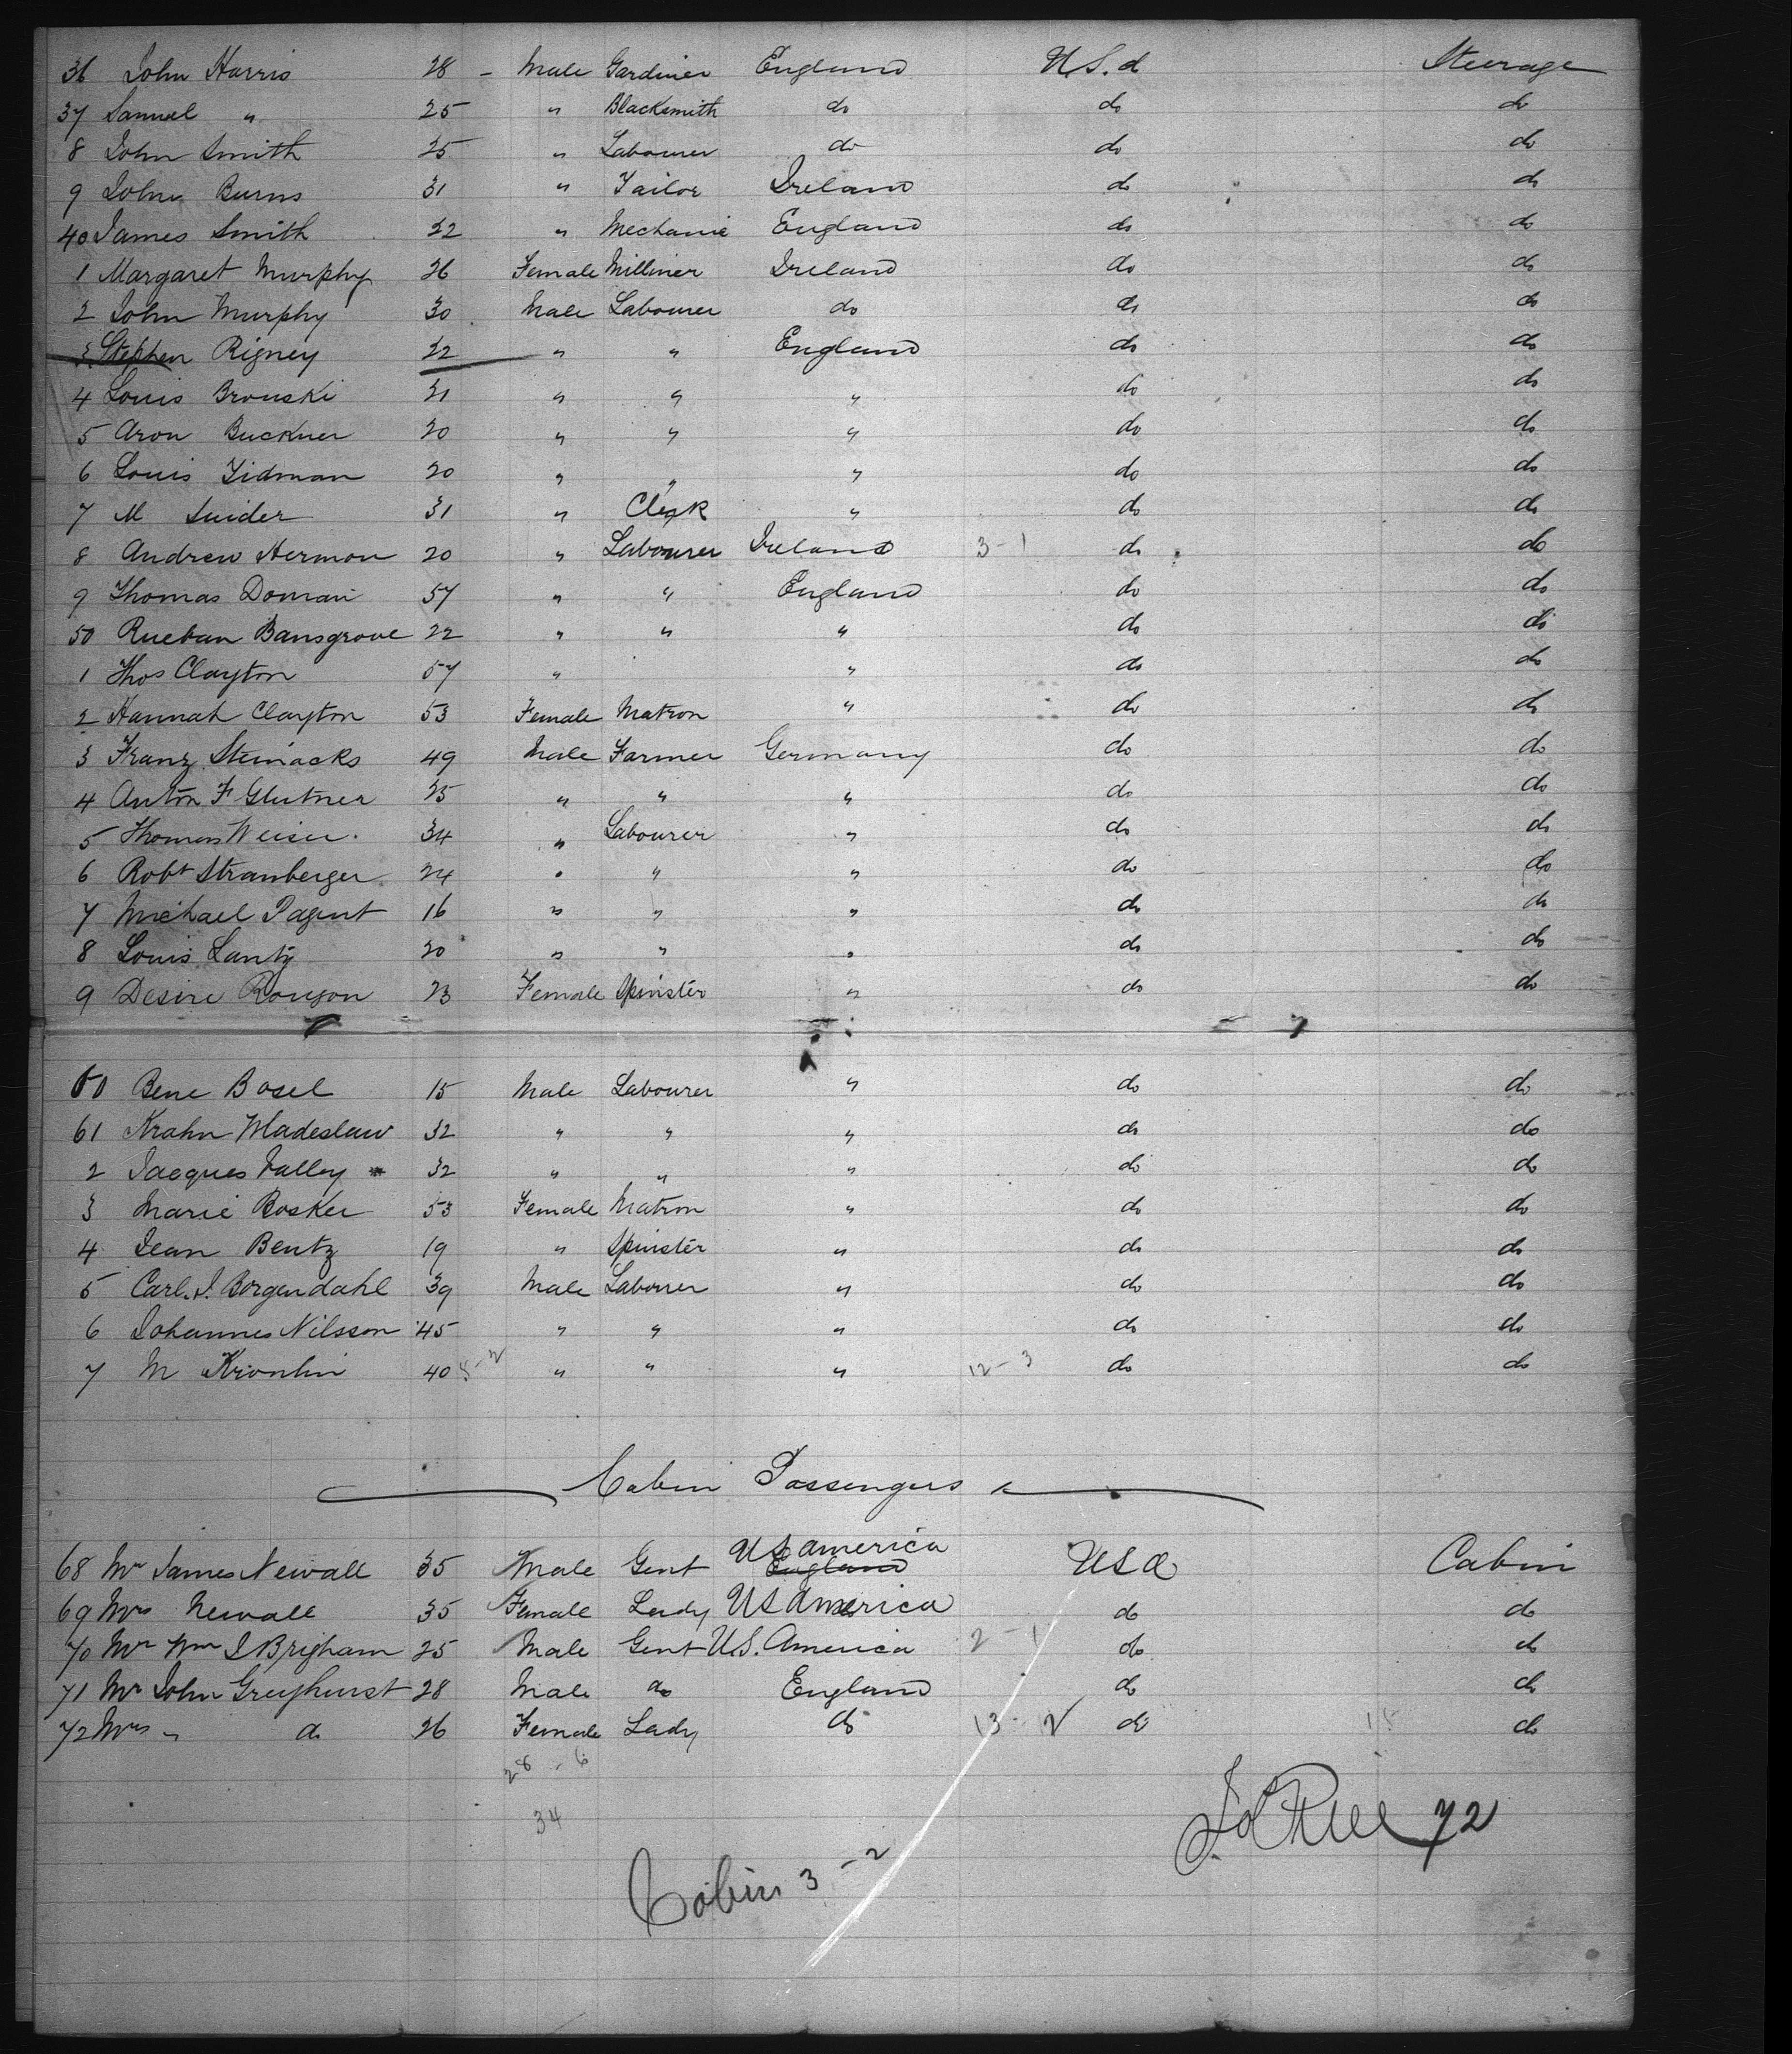 36 John Harris 28 - Male Gardiner England U.S.A Steerage
37 Samuel " 25 " Blacksmith do do do
8 John Smith 25 " Labourer do do do
9 John Burns 31 " Tailor Ireland do do
40 James Smith 22 " Mechanic England do do
1 Margaret Murphy 26 Female Milliner Ireland do do
2 John Murphy 30 Male Labourer do do do
3 Stephen Rigney 22 " " England do do
4 Louis Brouski 21 " " " do do
5 Aron Buckner 20 " " " do do
6 Louis Tidman 20 " " " do do
7 M Snider 31 " Clerk " do do
8 Andrew Hermon 20 " Labourer Ireland 3-1 do do
9 Thomas Domain 57 " " England do do
50 Rueban Bansgrove 22 " " " do do
1 Thos Clayton 57 " " do do
2 Hannah Clayton 53 Female Matron " do do
3 Franz Steinacks 49 Male Farmer Germany do do
4 Anton F Glutner 25 " " " do do
5 Thomas Weiser 34 " Labourer " do do
6 Robt Stramberger 24 " " " do do
7 Michael Pagent 16 " " " do do
8 Louis Lantz 20 " " " do do
9 Desire Rouson 23 Female Spinster " do do
60 Bene Bosel 15 Male Labourer " do do
61 Krahn Wladeslaw 32 " " " do do
2 Jacques Valley 32 " " " do do
3 Marie Bosker 53 Female Matron " do do
4 Jean Bentz 19 " Spinster " do do
5 Carl. J. Borgendahl 39 Male Labourer " do do
6 Johannes Nilsson 45 " " " do do
7 M Kronlin 40 " " " 12-3 do do
Cabin Passengers
68 Mr James Newall 35 Male Gent England US America USA Cabin
69 Mrs Newall 35 Female Lady US America do do
70 Mr Wm J Brigham 25 Male Gent U.S. America 2-1 do do
71 Mr John Greyhurst 28 Male do England do do
72 Mrs " do 26 Female Lady do 13-2 do 15 do
28-6
34
72
Cabin 3-2